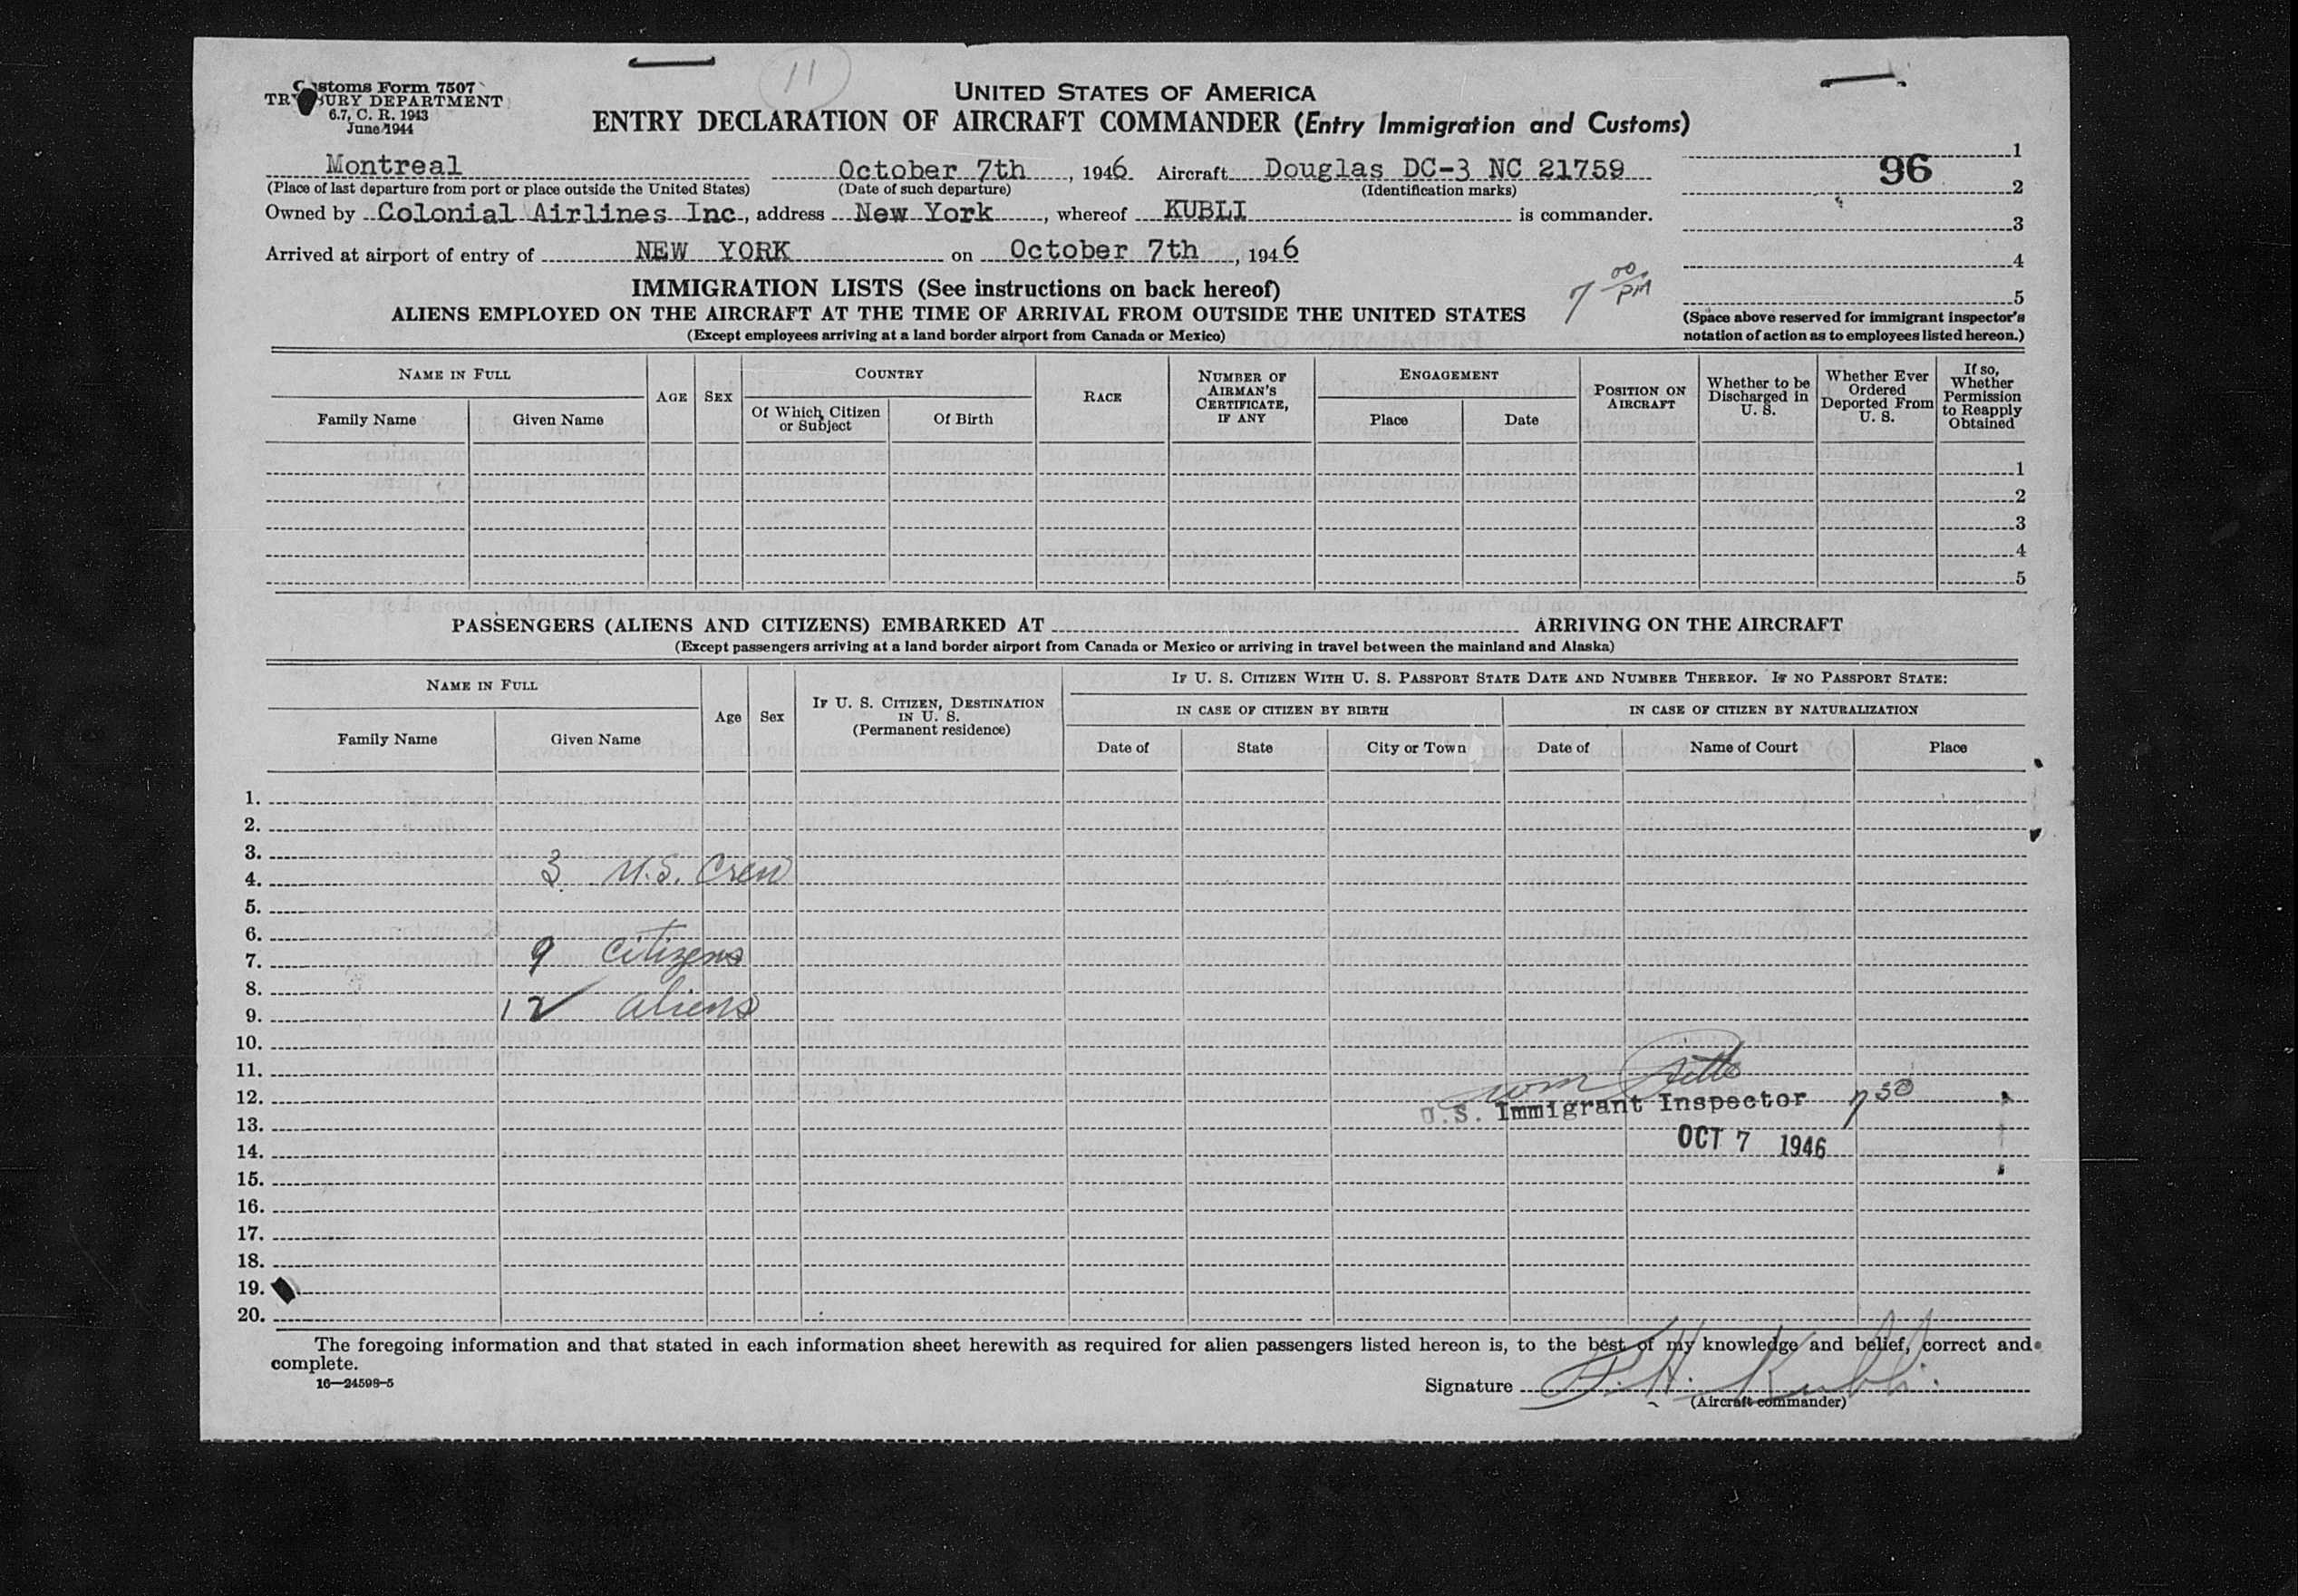 11
Customs Form 7507
TREASURY DEPARTMENT
6.7, C. R. 1943
June 1944
UNITED STATES OF AMERICA
ENTRY DECLARATION OF AIRCRAFT COMMANDER (Entry Immigration and Customs)
Montreal October 7th, 1946 Aircraft Douglas DC-3 NC 21759
(Place of last departure from port or place outside the United States) (Date of such departure) (Identification marks)
Owned by Colonial Airlines Inc, address New York, whereof KUBLI is commander.
Arrived at airport of entry of NEW YORK on October 7th, 1946
1
96
2
3
4
5
(Space above reserved for immigrant inspector's
notation of action as to employees listed hereon.)
7 00 PM
IMMIGRATION LISTS (See instructions on back hereof)
ALIENS EMPLOYED ON THE AIRCRAFT AT THE TIME OF ARRIVAL FROM OUTSIDE THE UNITED STATES
(Except employees arriving at a land border airport from Canada or Mexico)
NAME IN FULL
Family Name Given Name
AGE SEX
COUNTRY
Of Which Citizen or Subject Of Birth
RACE
NUMBER OF AIRMAN'S CERTIFICATE, IF ANY
ENGAGEMENT
Place Date
POSITION ON AIRCRAFT
Whether to be Discharged in U. S.
Whether Ever Ordered Deported From U. S.
If so, Whether Permission to Reapply Obtained
1
2
3
4
5
PASSENGERS (ALIENS AND CITIZENS) EMBARKED AT ARRIVING ON THE AIRCRAFT
(Except passengers arriving at a land border airport from Canada or Mexico or arriving in travel between the mainland and Alaska)
NAME IN FULL
Family Name Given Name
Age Sex
IF U. S. CITIZEN, DESTINATION IN U. S.
(Permanent residence)
IF U. S. CITIZEN WITH U. S. PASSPORT STATE DATE AND NUMBER THEREOF. IF NO PASSPORT STATE:
IN CASE OF CITIZEN BY BIRTH IN CASE OF CITIZEN BY NATURALIZATION
Date of State City or Town Date of Name of Court Place
1.
2.
3.
4. 3 U.S. Crew
5.
6.
7. 9 Citizens
8.
9. 12 aliens
10.
11.
12. Wm
U.S. Immigrant Inspector 7 50
13.
14. OCT 7 1946
15.
16.
17.
18.
19.
20.
The foregoing information and that stated in each information sheet herewith as required for alien passengers listed hereon is, to the best of my knowledge and belief, correct and
complete.
16—24598-5
Signature F. H. Kubli
(Aircraft commander)